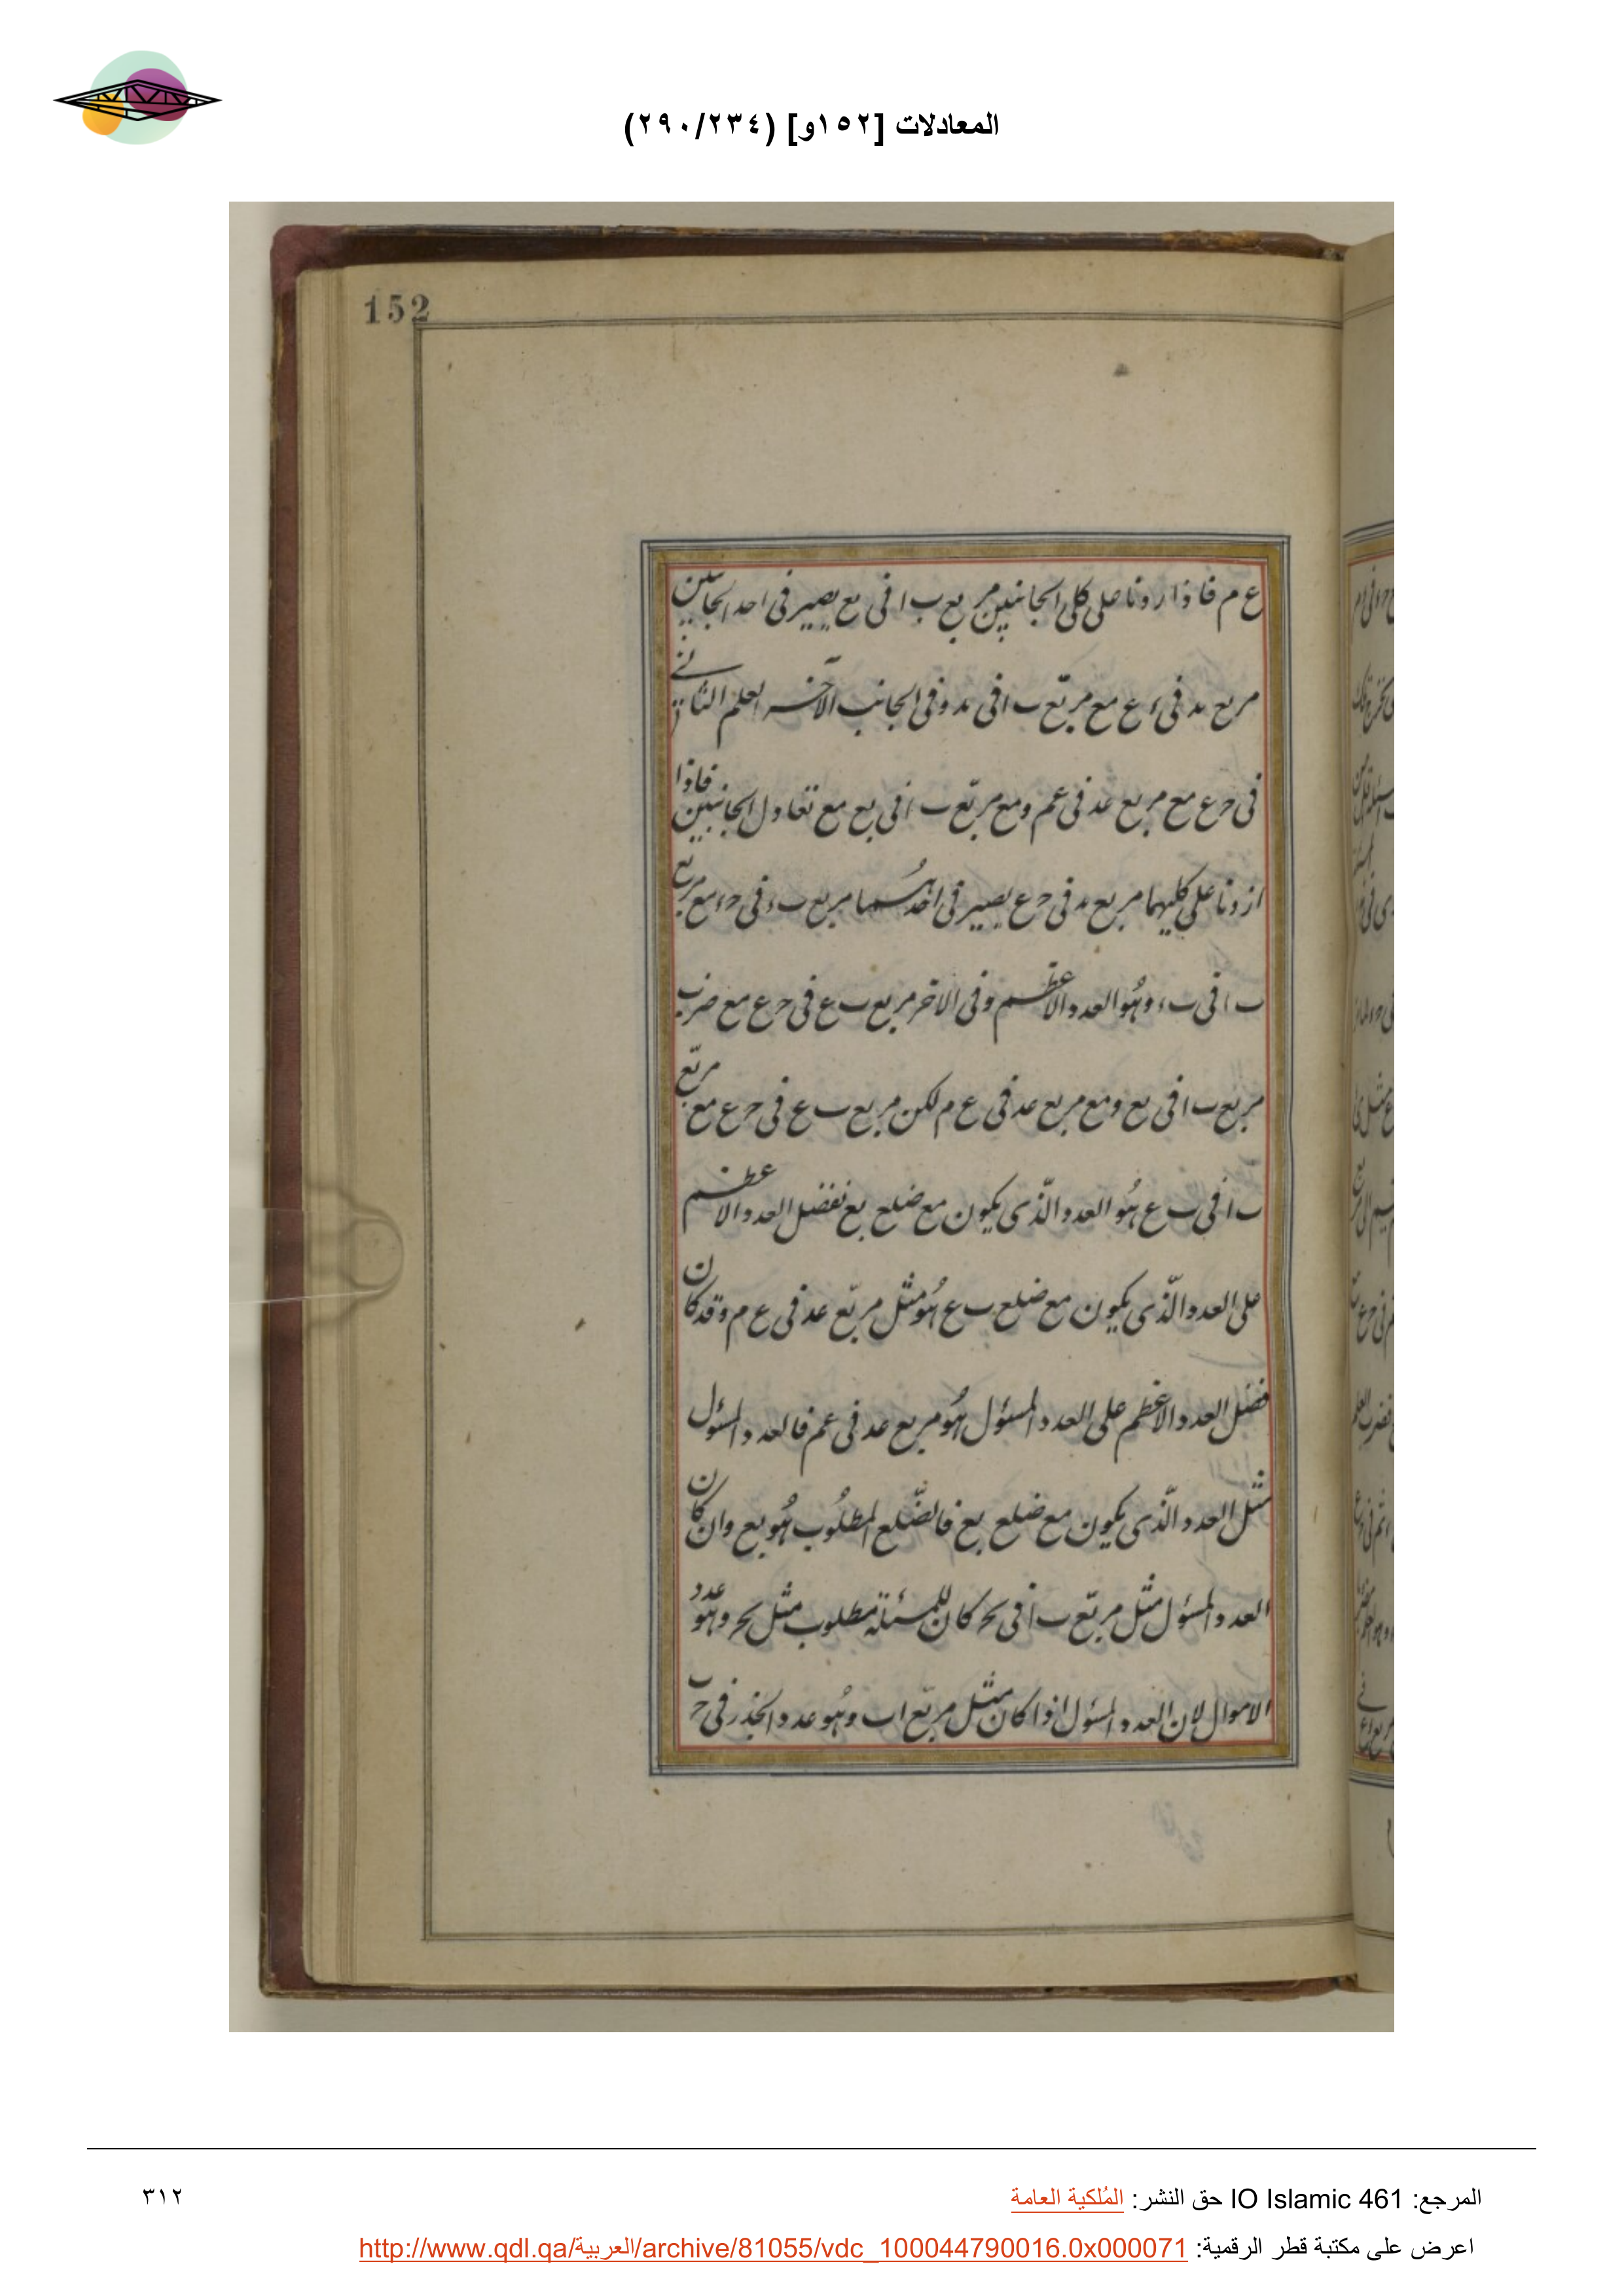 المعادلات [١٥٢و] (٢٩٠/٢٣٤)
152
ع م فاذا زدنا على كلى الجانبين مربع ب ا فى ىع يصير فى احد الجانبين
مربع ىد فى ء ع مع مربع ب ا فى ىد وفى الجانب الآخر العلم الثانى
فى حـ ع مع مربع عد فى عم ومع مربع ب ا فى ىع مع تعادل الجانبين فاذا
ازدنا على كليهما مربع ىد فى حـ ع يصير فى احدهما مربع ب ء فى حـ ء مع مربع
ب ا فى ب ء وهو العدد الاعظم وفى الاخر مربع ب ع فى حـ ع مع ضرب
مربع ب ا فى ىع ومع مربع عد فى ع م لكن مربع ب ع فى حـ ع مع مربع
ب ا فى ب ع هو العدد الذى يكون مع ضلع بع نفضل العدد الاعظم
على العدد الذى يكون مع ضلع ب ع هو مثل مربع عد فى ع م وقد كان
فضل العدد الاعظم على العدد المسئول هو مربع عد فى عم فالعدد المسئول
مثل العدد الذى يكون مع ضلع بع فالضلع المطلوب هو بع وان كان
العدد المسئول مثل مربع ب ا فى بحـ كان للمسئلة مطلوب مثل بحـ وهو عدد
الاموال لان العدد المسئول اذا كان مثل مربع اب وهو عدد الجذر فى حـ ب
المرجع: IO Islamic 461 حق النشر: المُلكية العامة
٣١٢
اعرض على مكتبة قطر الرقمية: http://www.qdl.qa/العربية/archive/81055/vdc_100044790016.0x000071